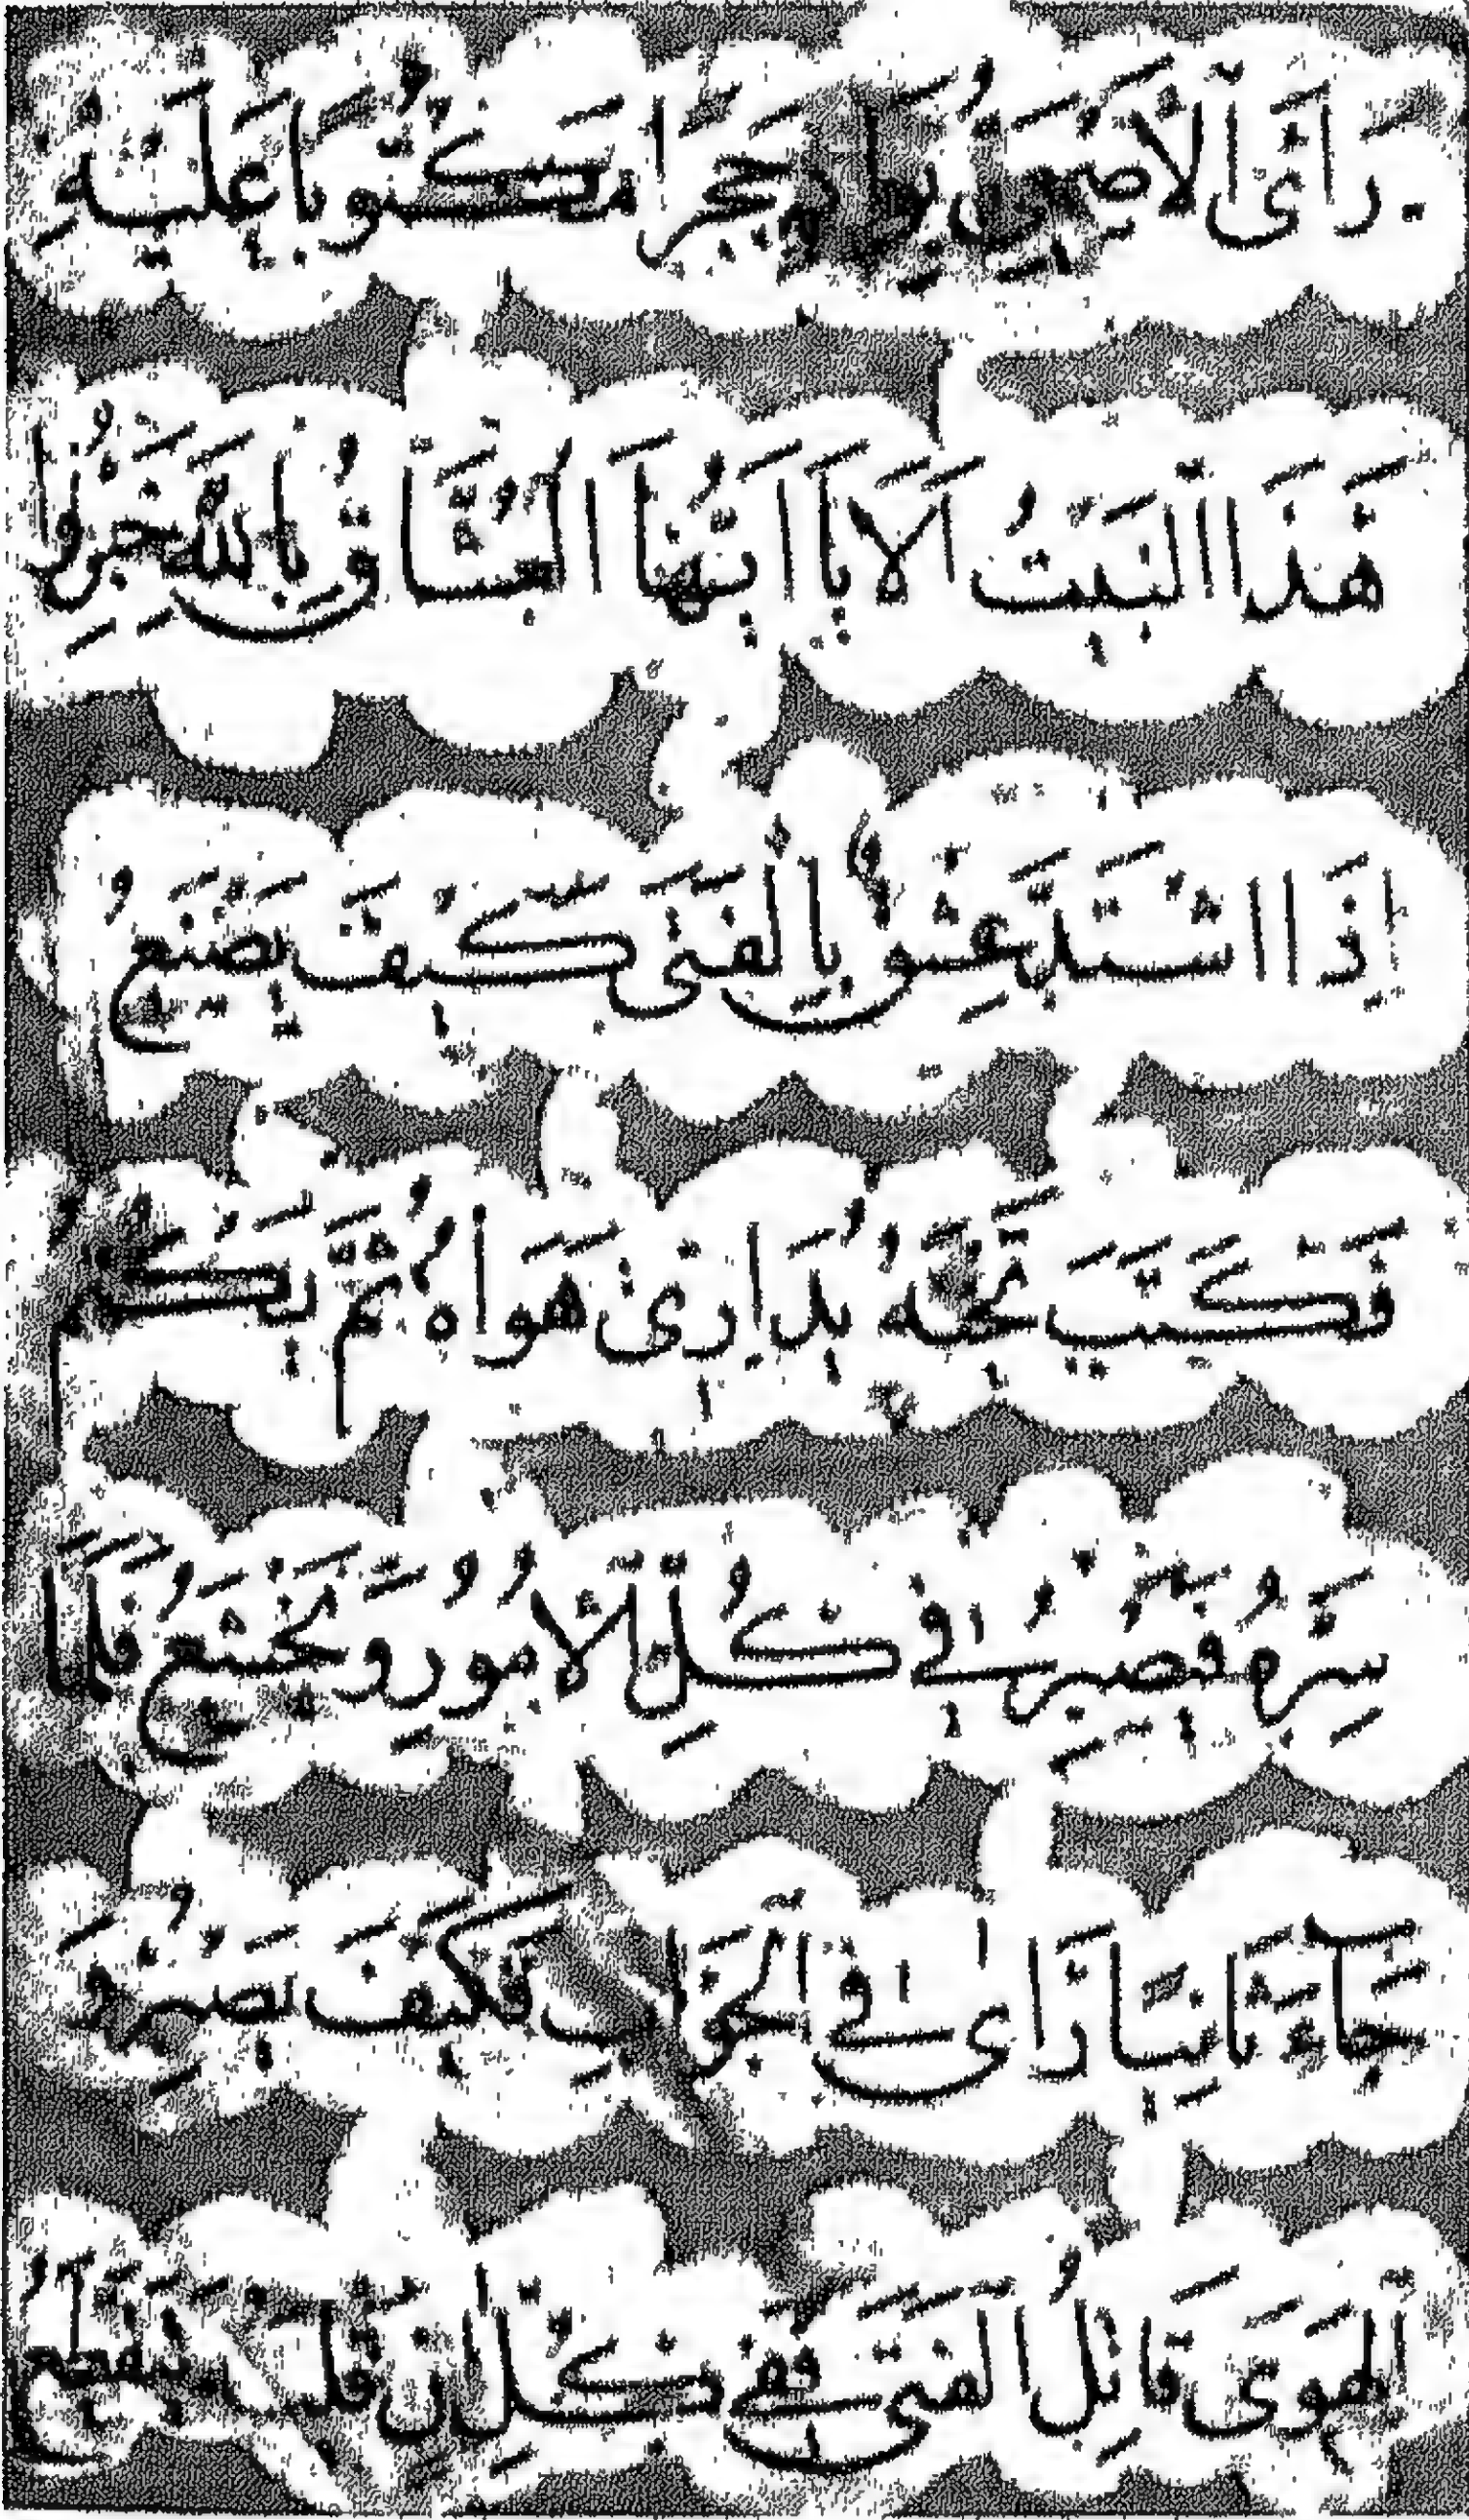 رَأَى الأَصْمَعِيُّ يَوْمًا حَجَرًا مَكْتُوبًا عَلَيْهِ
هَذَا الْبَيْتُ أَلَا يَا أَيُّهَا الْعُشَّاقُ بِاللهِ خَبِّرُوا
إِذَا اشْتَدَّ عِشْقٌ بِالْفَتَى كَيْفَ يَصْنَعُ
فَكَتَبَ تَحْتَهُ يُدَارِي هَوَاهُ ثُمَّ يَكْتُمُ
سِرَّهُ وَيَصْبِرُ فِي كُلِّ الْأُمُورِ وَيَخْضَعُ فَلَمَّا
جَاءَ ثَانِيًا رَأَى فِي الْجَوَابِ فَكَيْفَ يُصْبِرُ وَ
الْهَوَى قَاتِلُ الْفَتَى فَفِي كُلِّ آنٍ قَلْبُهُ يَتَقَطَّعُ